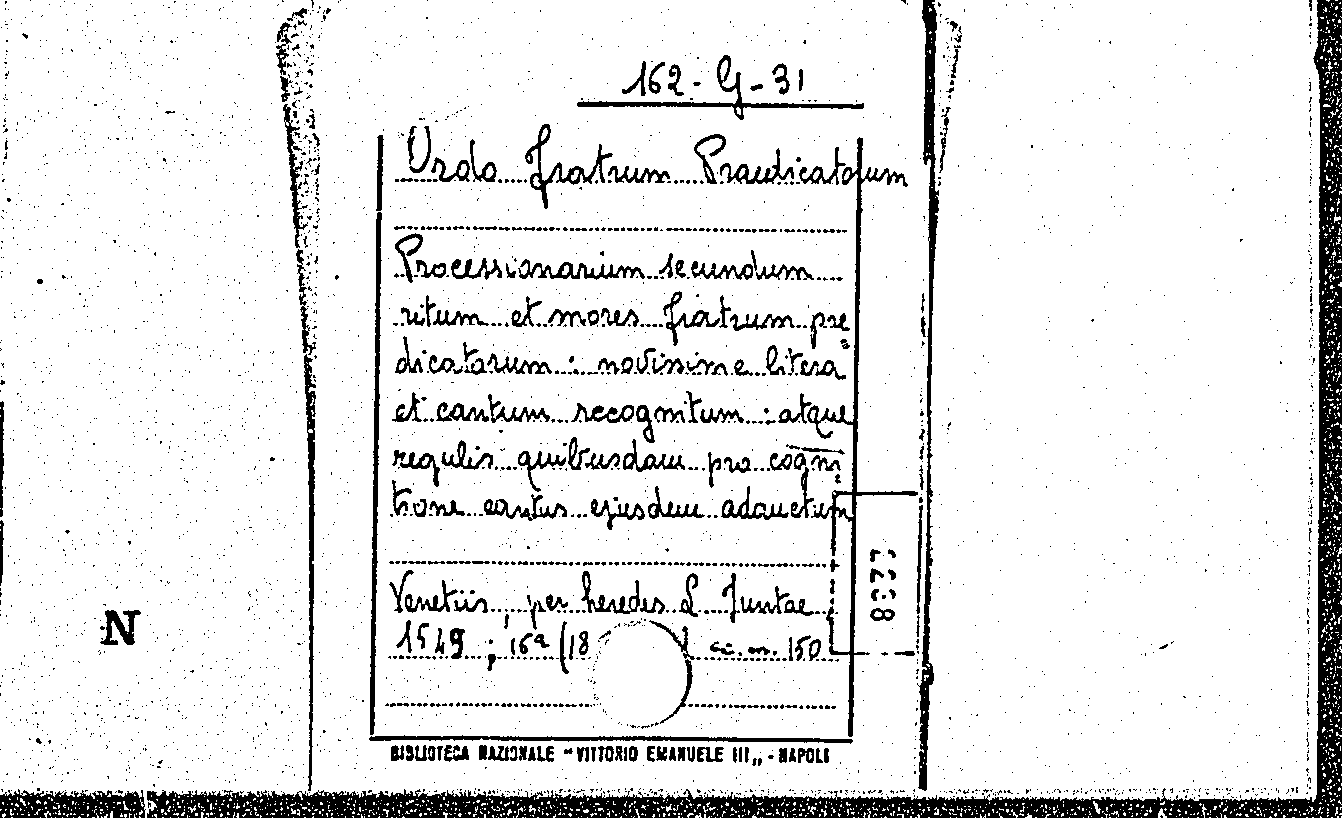 162-G-31
Ordo Fratrum Praedicatorum
Processionarium secundum
ritum et mores fratrum pre=
dicatorum : novissime litera
et cantum recognitum : atque
regulis quibusdam pro cogni=
tione cantus ejusdem adauctum
Venetiis, per heredes L. Juntae,
1549 ; 16ª (18 cc. n. 150
8277
N
BIBLIOTECA NAZIONALE "VITTORIO EMANUELE III" - NAPOLI